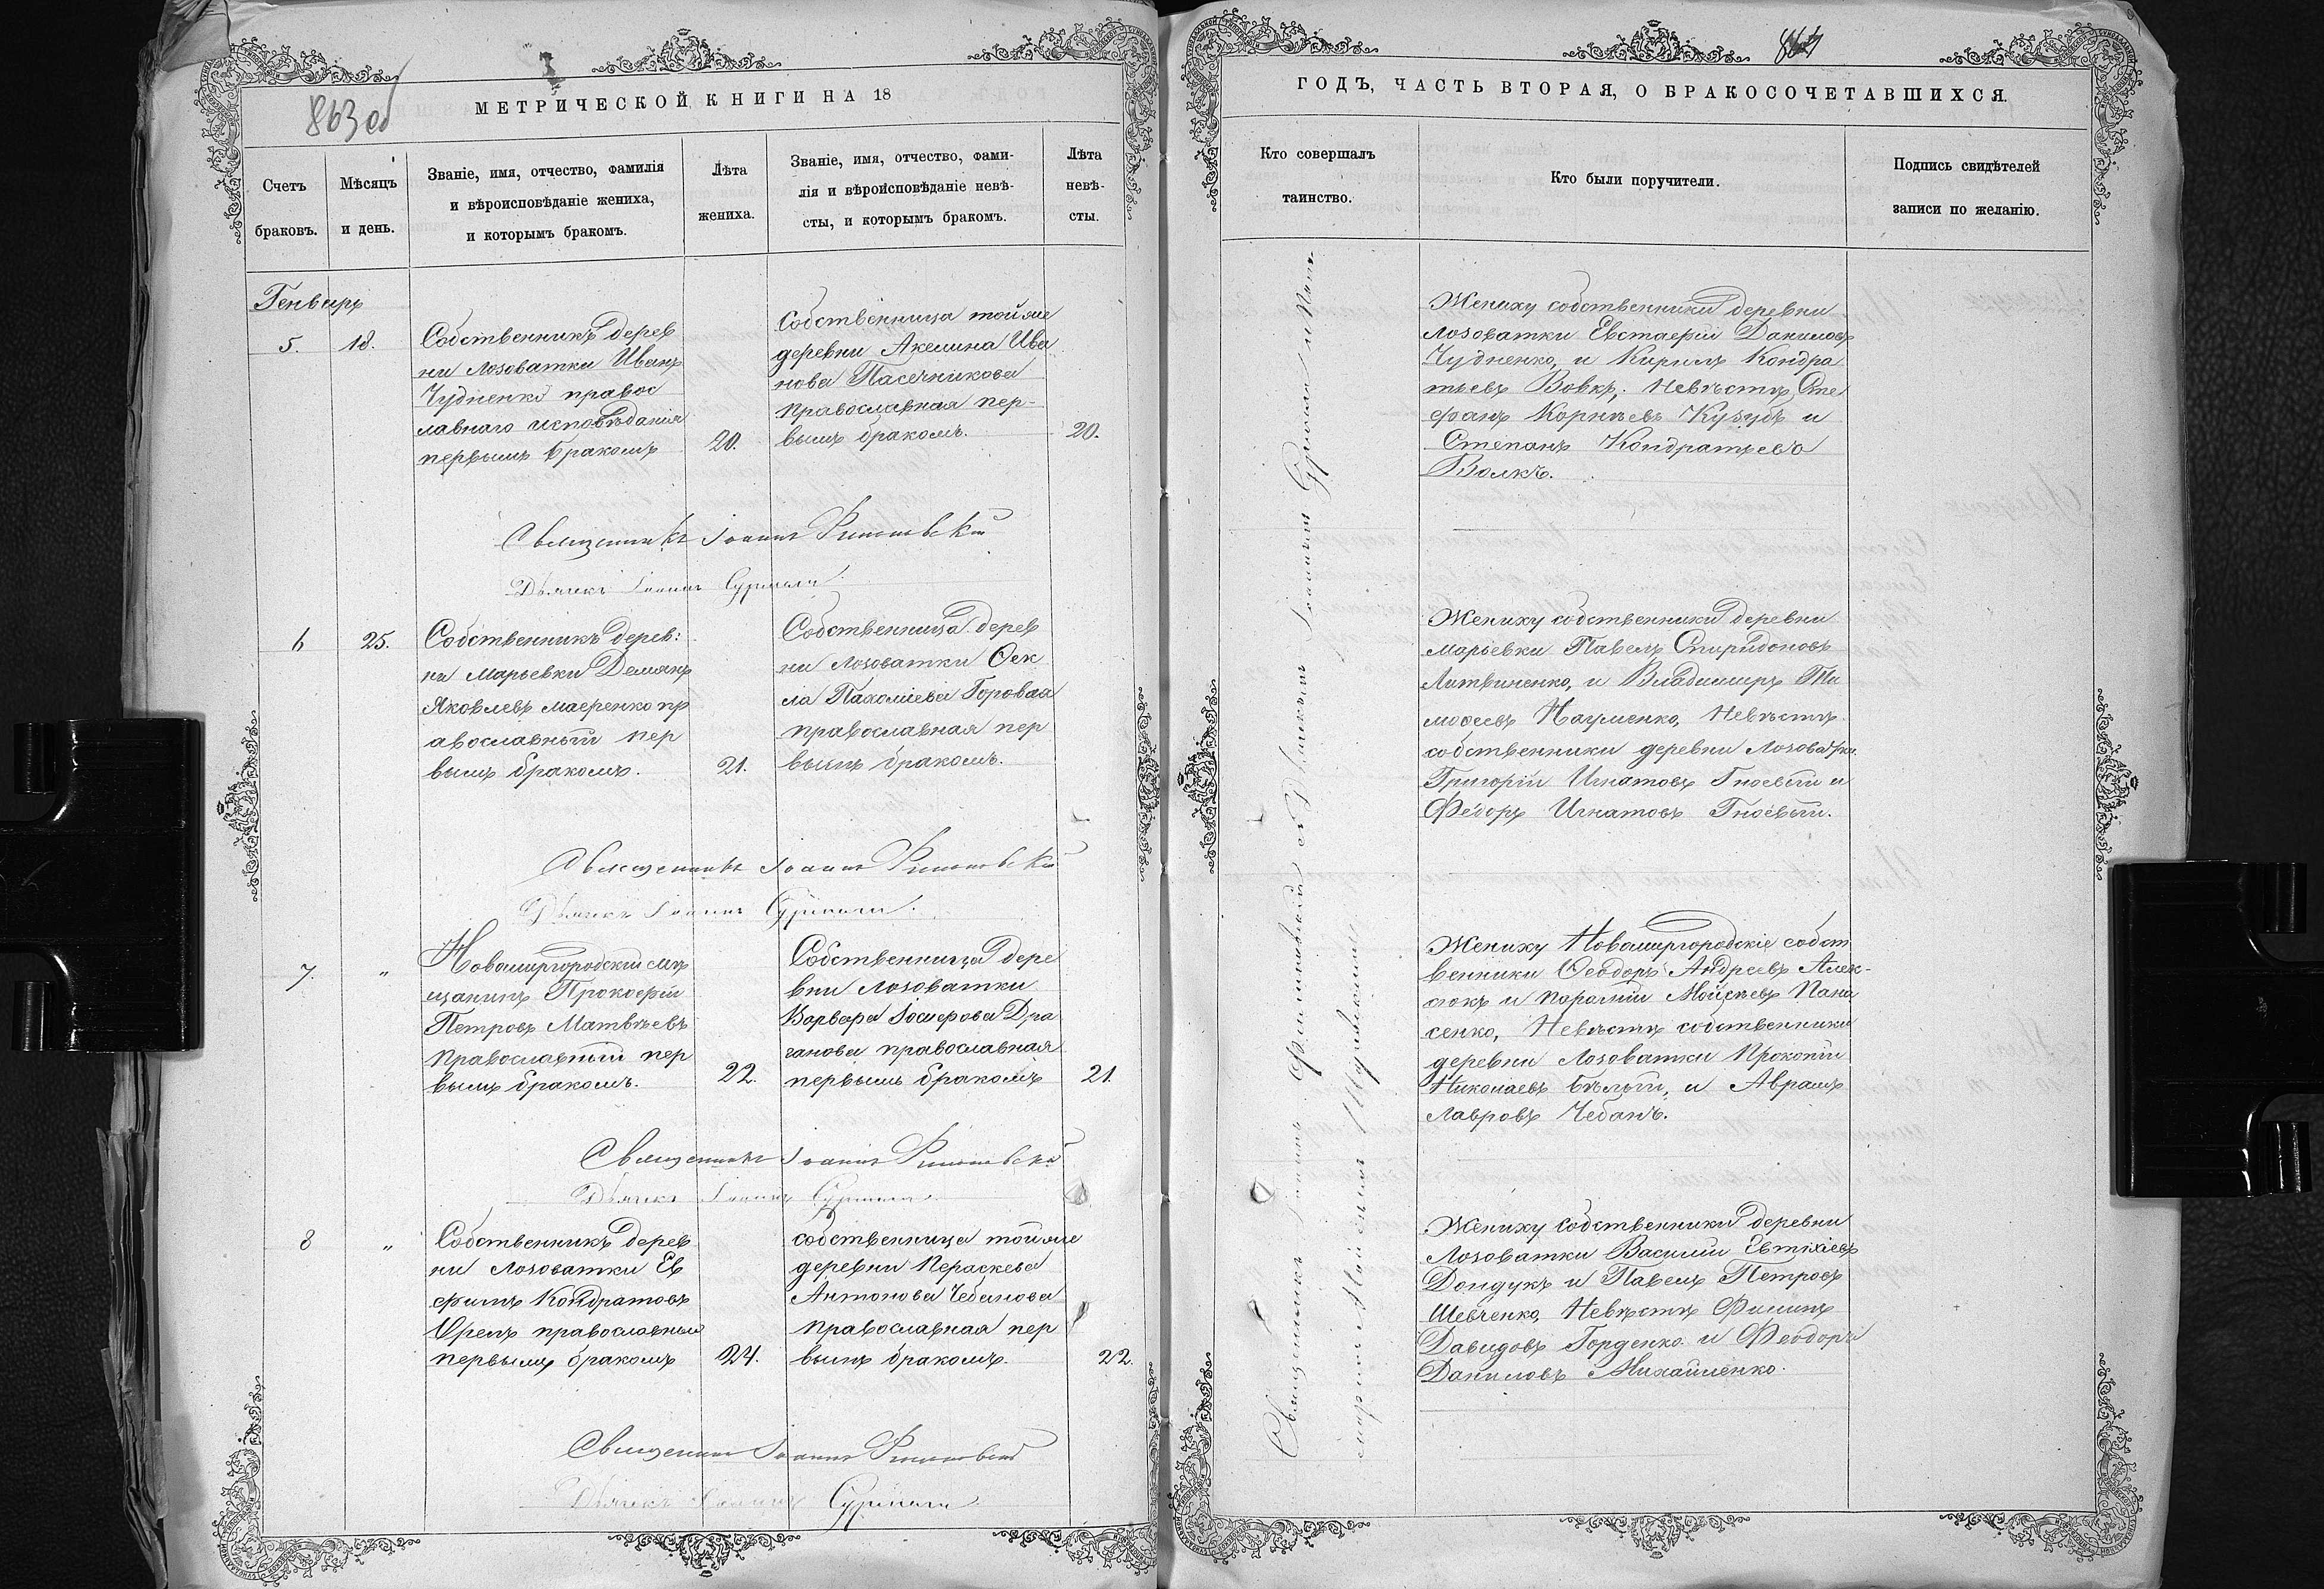 863 об
МЕТРИЧЕСКОЙ КНИГИ НА 18
Счетъ
браковъ.
Мѣсяцъ
и день.
Званіе, имя, отчество, фамилія
и вѣроисповѣданіе жениха,
и которымъ бракомъ.
Лѣта
жениха.
Званіе, имя, отчество, фами-
лія и вѣроисповѣданіе невѣ-
сты, и которымъ бракомъ.
Лѣта
невѣ-
сты.
Генварь
5.
18.
Собственникъ дерев
ни Лозоватки Иванъ
Чудненко правос
лавнаго исповѣданія
первымъ бракомъ
20.
Собственница той же
деревни Акелина Ива
нова Пасечникова
православная пер-
вымъ бракомъ.
20.
Священникъ Іоаннъ
Дьячкъ Іоаннъ
6
25.
Собственникъ дерев:
ни Марьевки Демянъ
Яковлевъ Маеренко пр
авославный пер
вымъ бракомъ.
21.
Собственница дерев
ни Лозоватки Ѳек
ла Пахоміева Горовая
православная пер
вымъ бракомъ.
Священникъ Іоаннъ
Дьячкъ Іоаннъ
7.
"
Новомиргородскій мѣ
щанинъ Прокофій
Петровъ Матвѣевъ
Православный пер
вымъ бракомъ.
22.
Собственница дере
вни Лозоватки
Варвара Іосифова Дра
ганова православная
первымъ бракомъ
21.
Священникъ Іоаннъ
Дьячкъ Іоаннъ
8
"
Собственникъ дерев
ни Лозоватки Ев
фимъ Кондратовъ
Орелъ православный
первымъ бракомъ
24.
собственница той же
деревни Параскева
Антонова Чебанова
Православная пер
вымъ бракомъ.
22.
Священникъ Іоаннъ
Дьячкъ Іоаннъ
ГОДЪ, ЧАСТЬ ВТОРАЯ, О БРАКОСОЧЕТАВШИХСЯ.
Кто совершалъ
таинство.
Кто были поручители.
Подпись свидѣтелей
записи по желанію.
Священникъ Іоаннъ съ Дьячкомъ Іоанномъ
Жениху собственники деревни
Лозоватки Евстафій Даниловъ
Чудненко, и Кирилъ Кондра
тьевъ Вовкъ; Невѣстѣ Сте
фанъ Корнѣевъ Куцубъ и
Степанъ Кондратьевъ
Волкъ.
Жениху собственники деревни
Марьевки Павелъ Спиридоновъ
Литвиненко, и Владимиръ Ти
моѳеевъ Науменко, Невѣстѣ
собственники деревни Лозоватки
Григорій Игнатовъ Гноевый и
Федоръ Игнатовъ Гноевый.
Жениху Новомиргородскіе собст
венники Ѳеодоръ Андреевъ Алек-
сюкъ и Порфирій Мойсѣевъ Пана
сенко, Невѣстѣ собственники
деревни Лозоватки Прокопій
Николаевъ Бѣлый, и Аврамъ
Лавровъ Чебанъ.
Жениху Собственники деревни
Лозоватки Василій Евтихіевъ
Дондукъ и Павелъ Петровъ
Шевченко, Невѣстѣ Филипъ
Давидовъ Горденко и Феодоръ
Даниловъ Михайленко.